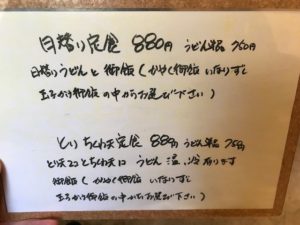 日替り定食 880円 うどん単品 760円
日替りうどんと御飯(かやく御飯 いなりずし
玉子かけ御飯 の中からお選び下さい)
とり ちくわ天定食 880円 うどん単品 760円
とり天2コとちくわ天に うどん 温、冷 有ります
御飯(かやく御飯 いなりずし
玉子かけ御飯 の中からお選び下さい)